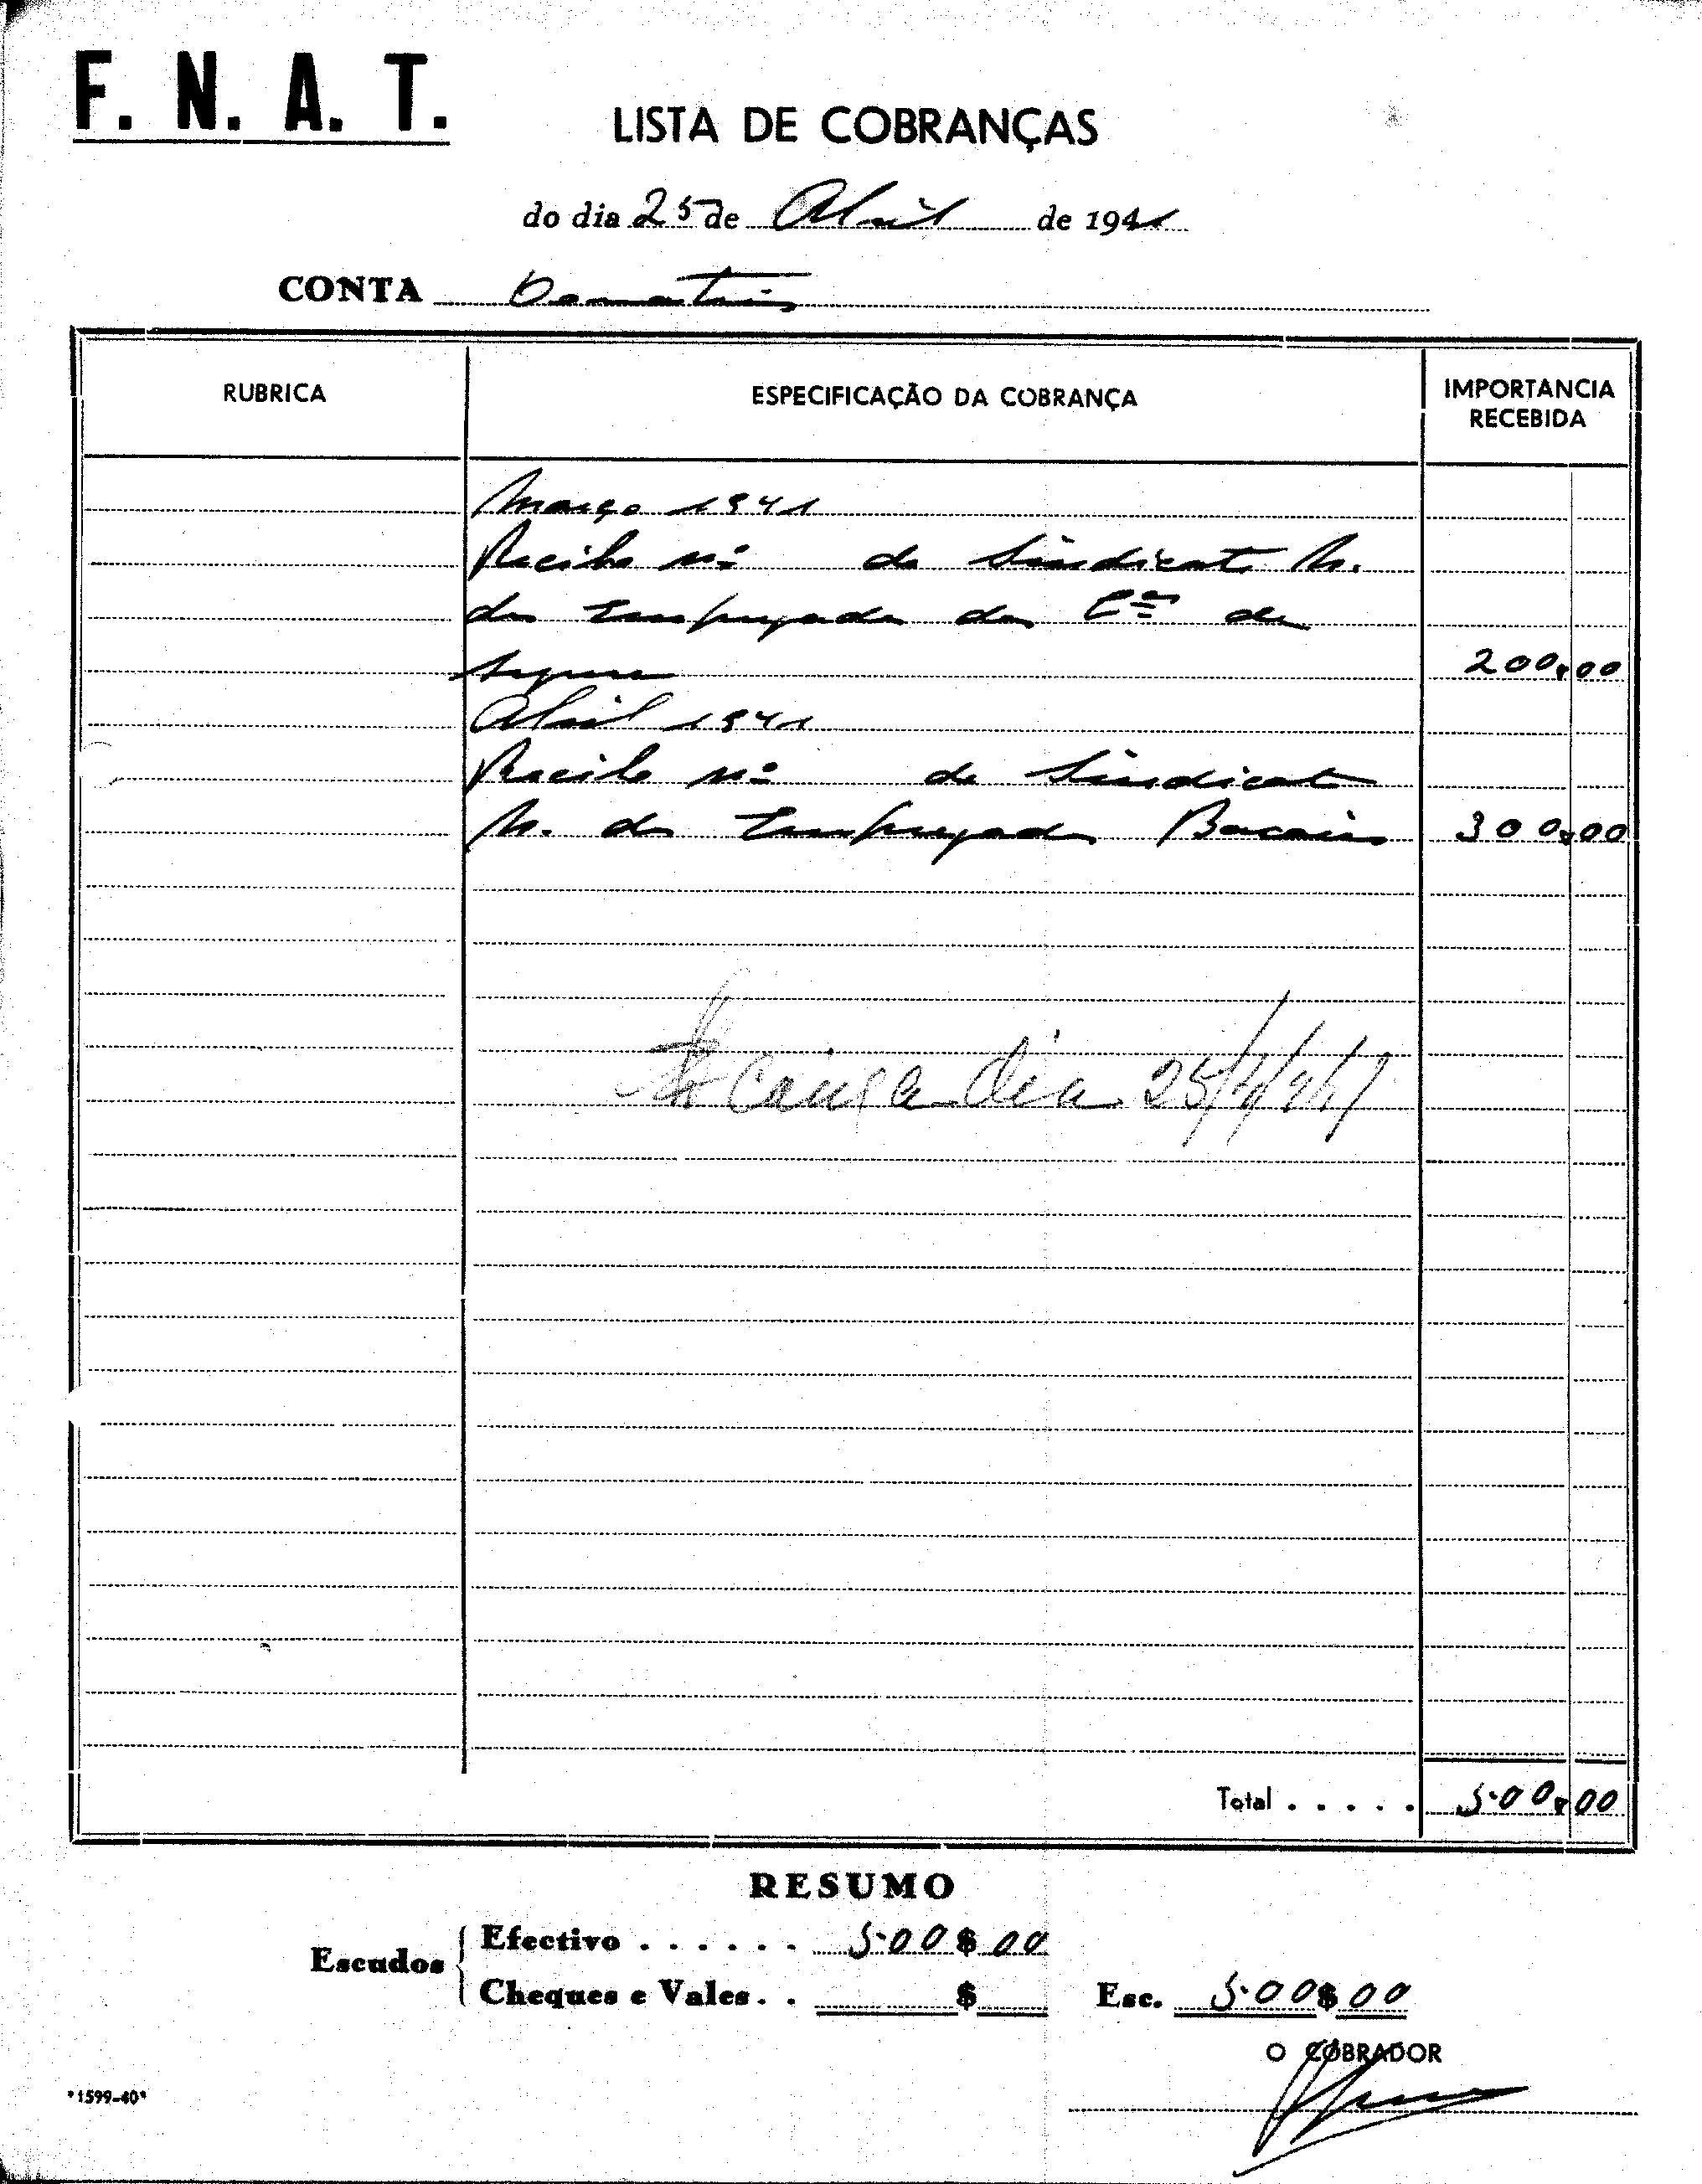 F. N. A. T.
LISTA DE COBRANÇAS
do dia 25 de Abril de 1941
CONTA Donativos
RUBRICA ESPECIFICAÇÃO DA COBRANÇA IMPORTANCIA RECEBIDA
Março 1941
Recibo nº do Sindicato N.
dos Empregados das Cªs de
Seguros 200$00
Abril 1941
Recibo nº do Sindicato
N. dos Empregados Bancários 300$00
Caixa dia 25/4/941
Total . . . . . 500$00
RESUMO
Escudos
Efectivo . . . . . . 500$00
Cheques e Vales. . $
Esc. 500$00
O COBRADOR
*1599-40*